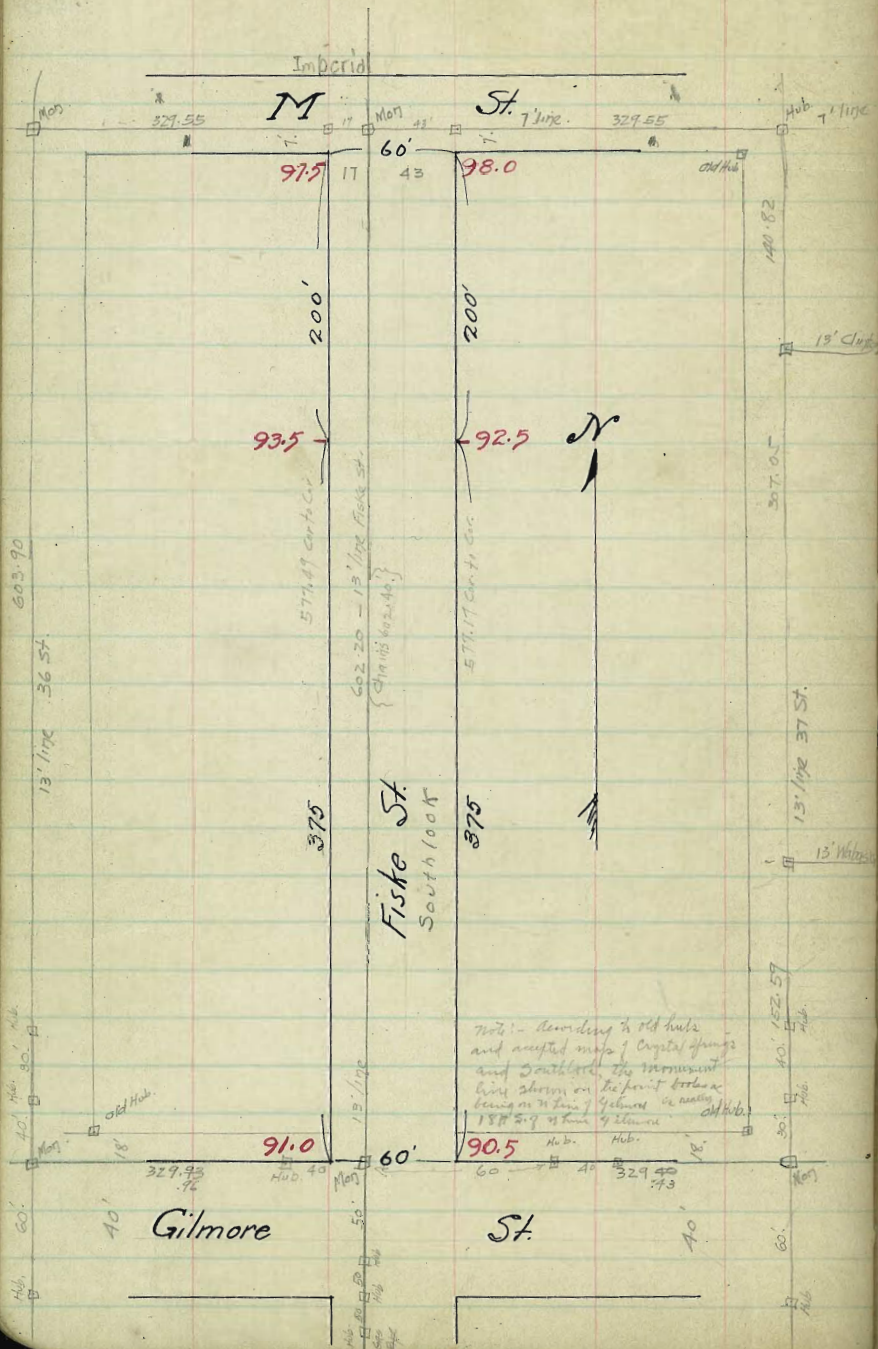 Imperial
M St.
Mon
329.55
17
Mon
43
7' line
329.55
Hub
7' line
7'
60'
7'
97.5
17
43
98.0
Old Hub
140.82
200'
200'
13'
93.5
92.5
N
307.05
577.49 Cor. to Cor.
602.20 - 13' line Fiske St.
{Chains 602.40'}
577.17 Cor. to Cor.
603.90
13' line 36 St.
13' line 37 St.
375
Fiske St.
Southlook
375
13'
152.59
Hub.
30'
Hub.
40'
Hub.
40'
Hub.
30'
Note:- According to old hubs
and accepted map of Crystal Springs
and Southlook, the Monument
line shown on tie point books as
being on N line of Gilmore is really
18' S. of N line Gilmore
Old Hub.
Old Hub.
13' line
18'
91.0
60'
90.5
Hub.
Hub.
18'
Mon
329.93
.96
Hub
40
Mon
60
40
329.40
.43
Mon
60'
40'
Gilmore St.
50'
40'
60'
Hub.
50
Hub
Hub